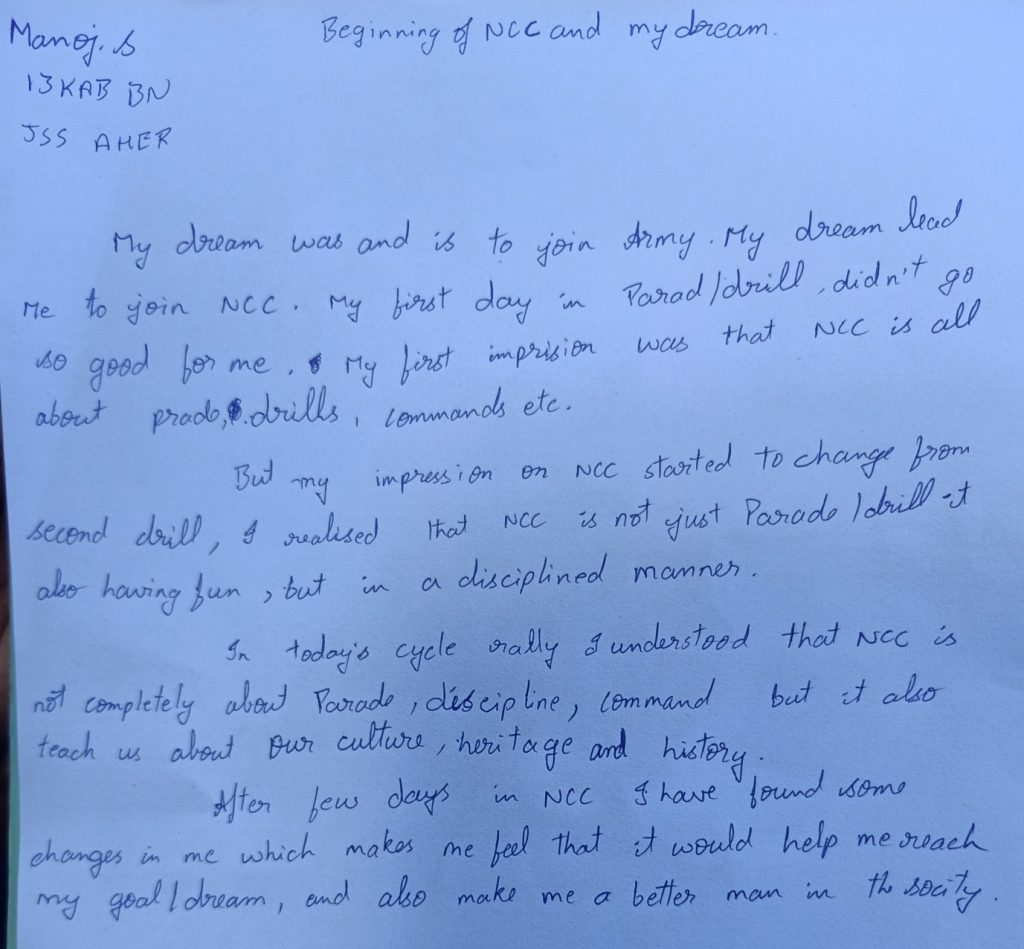 Beginning of NCC and my dream.
Manoj. S
13 KAB BN
JSS AHER
My dream was and is to join Army. My dream lead
me to join NCC. My first day in Parad/drill, didn't go
so good for me. My first imprision was that NCC is all
about prade, drills, commands etc.
But my impression on NCC started to change from
second drill, I realised that NCC is not just Parade/drill it
also having fun, but in a disciplined manner.
In today's cycle rally I understood that NCC is
not completely about Parade, discipline, command but it also
teach us about our culture, heritage and history.
After few days in NCC I have found some
changes in me which makes me feel that it would help me reach
my goal/dream, and also make me a better man in the socity.